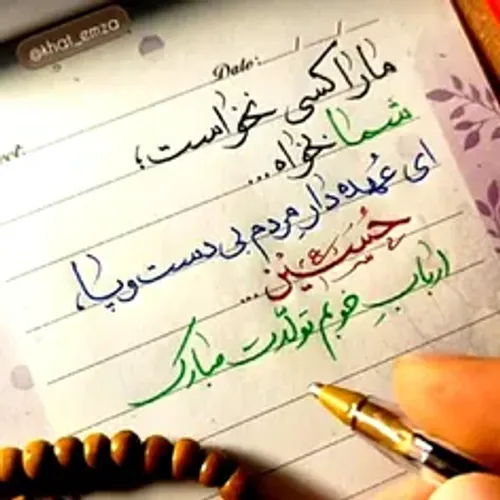 @khat_emza
Date: / /
ما را کسی نخواست؛
شما بخواه...
ای عُهده دارِ مردم بی دست و پا،
حُسین...
اربابِ خوبم تولّدت مبارک